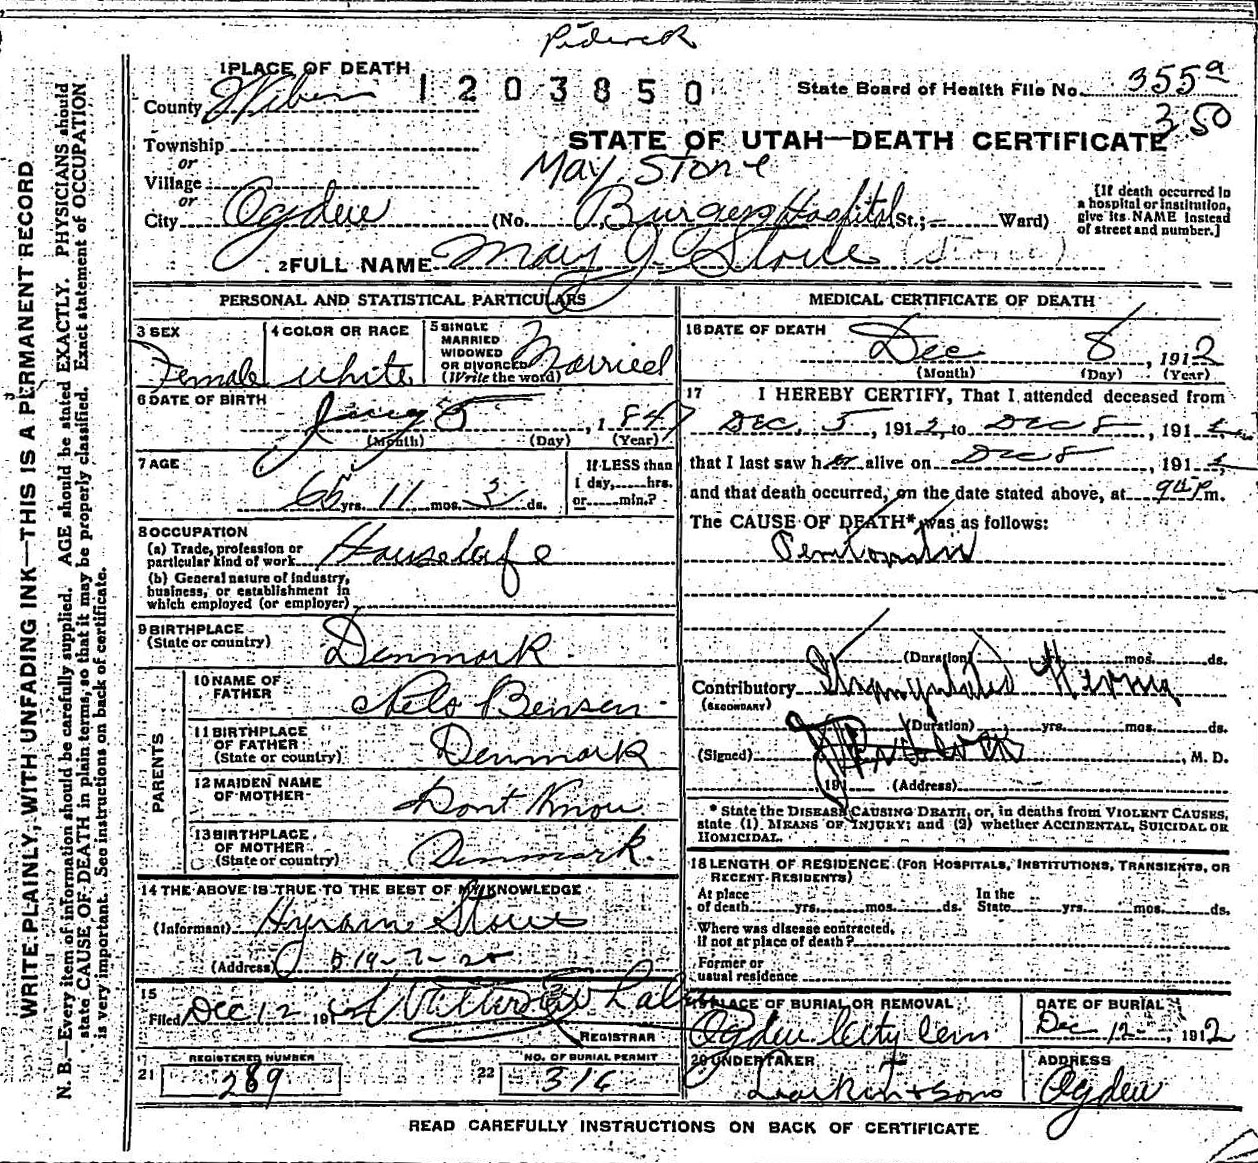 1 PLACE OF DEATH
County Weber
1203850
State Board of Health File No. 355 a
350
Township
or
Village
or
City Ogden
STATE OF UTAH—DEATH CERTIFICATE
May Stone
(No. Burgess Hospital St.; — Ward)
[If death occurred in
a hospital or institution,
give its NAME instead
of street and number.]
2 FULL NAME Mary J. Stone (Stone)
WRITE PLAINLY, WITH UNFADING INK—THIS IS A PERMANENT RECORD
N. B.—Every item of information should be carefully supplied. AGE should be stated EXACTLY. PHYSICIANS should
state CAUSE OF DEATH in plain terms, so that it may be properly classified. Exact statement of OCCUPATION
is very important. See instructions on back of certificate.
PERSONAL AND STATISTICAL PARTICULARS
3 SEX
Female
4 COLOR OR RACE
White
5 SINGLE
MARRIED
WIDOWED
OR DIVORCED
(Write the word)
Married
6 DATE OF BIRTH
Jany 5, 1847
(Month) (Day) (Year)
7 AGE
65 yrs. 11 mos. 3 ds.
If LESS than
1 day, hrs.
or min.?
8 OCCUPATION
(a) Trade, profession or
particular kind of work Housewife
(b) General nature of industry,
business, or establishment in
which employed (or employer)
9 BIRTHPLACE
(State or country)
Denmark
PARENTS
10 NAME OF
FATHER
Nels Bensen
11 BIRTHPLACE
OF FATHER
(State or country)
Denmark
12 MAIDEN NAME
OF MOTHER
Dont Know
13 BIRTHPLACE
OF MOTHER
(State or country)
Denmark
14 THE ABOVE IS TRUE TO THE BEST OF MY KNOWLEDGE
(Informant) Hyrum Stone
(Address)
15
Filed Dec 12 191
REGISTRAR
21 REGISTERED NUMBER
289
22 NO. OF BURIAL PERMIT
316
MEDICAL CERTIFICATE OF DEATH
16 DATE OF DEATH
Dec 8, 1912
(Month) (Day) (Year)
17 I HEREBY CERTIFY, That I attended deceased from
Dec. 5, 1912, to Dec 8, 191
that I last saw her alive on Dec 8, 191
and that death occurred, on the date stated above, at m.
The CAUSE OF DEATH* was as follows:
Peritonitis
(Duration) yrs. mos. ds.
Contributory Strangulated Hernia
(SECONDARY)
(Duration) yrs. mos. ds.
(Signed) , M. D.
191 (Address)
* State the DISEASE CAUSING DEATH, or, in deaths from VIOLENT CAUSES,
state (1) MEANS OF INJURY; and (2) whether ACCIDENTAL, SUICIDAL OR
HOMICIDAL.
18 LENGTH OF RESIDENCE (FOR HOSPITALS, INSTITUTIONS, TRANSIENTS, OR
RECENT RESIDENTS)
At place
of death yrs. mos. ds.
In the
State yrs. mos. ds.
Where was disease contracted,
if not at place of death?
Former or
usual residence
PLACE OF BURIAL OR REMOVAL
Ogden City Cem
DATE OF BURIAL
Dec 12, 1912
20 UNDERTAKER
Larkin & Sons
ADDRESS
Ogden
READ CAREFULLY INSTRUCTIONS ON BACK OF CERTIFICATE